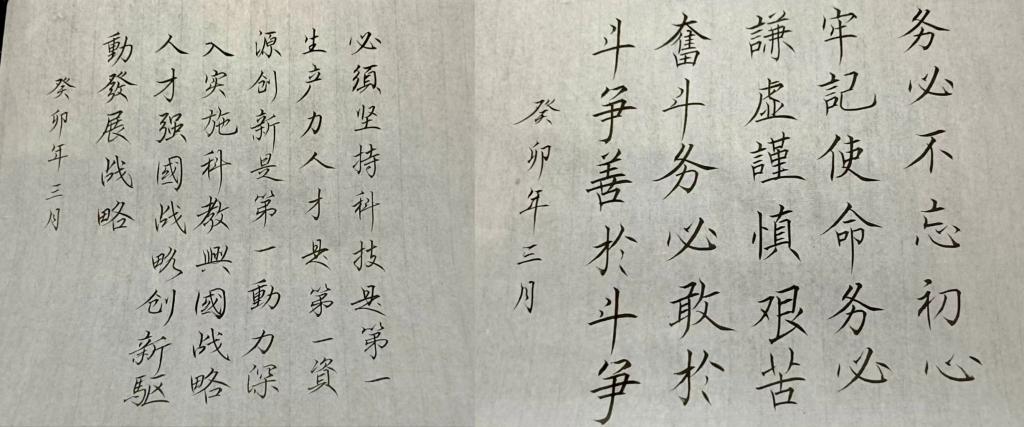 必須坚持科技是第一
生产力人才是第一資
源创新是第一動力深
入实施科教興國战略
人才强國战略创新驱
動發展战略
癸卯年三月
务必不忘初心
牢記使命务必
謙虛謹慎艰苦
奮斗务必敢於
斗争善於斗争
癸卯年三月